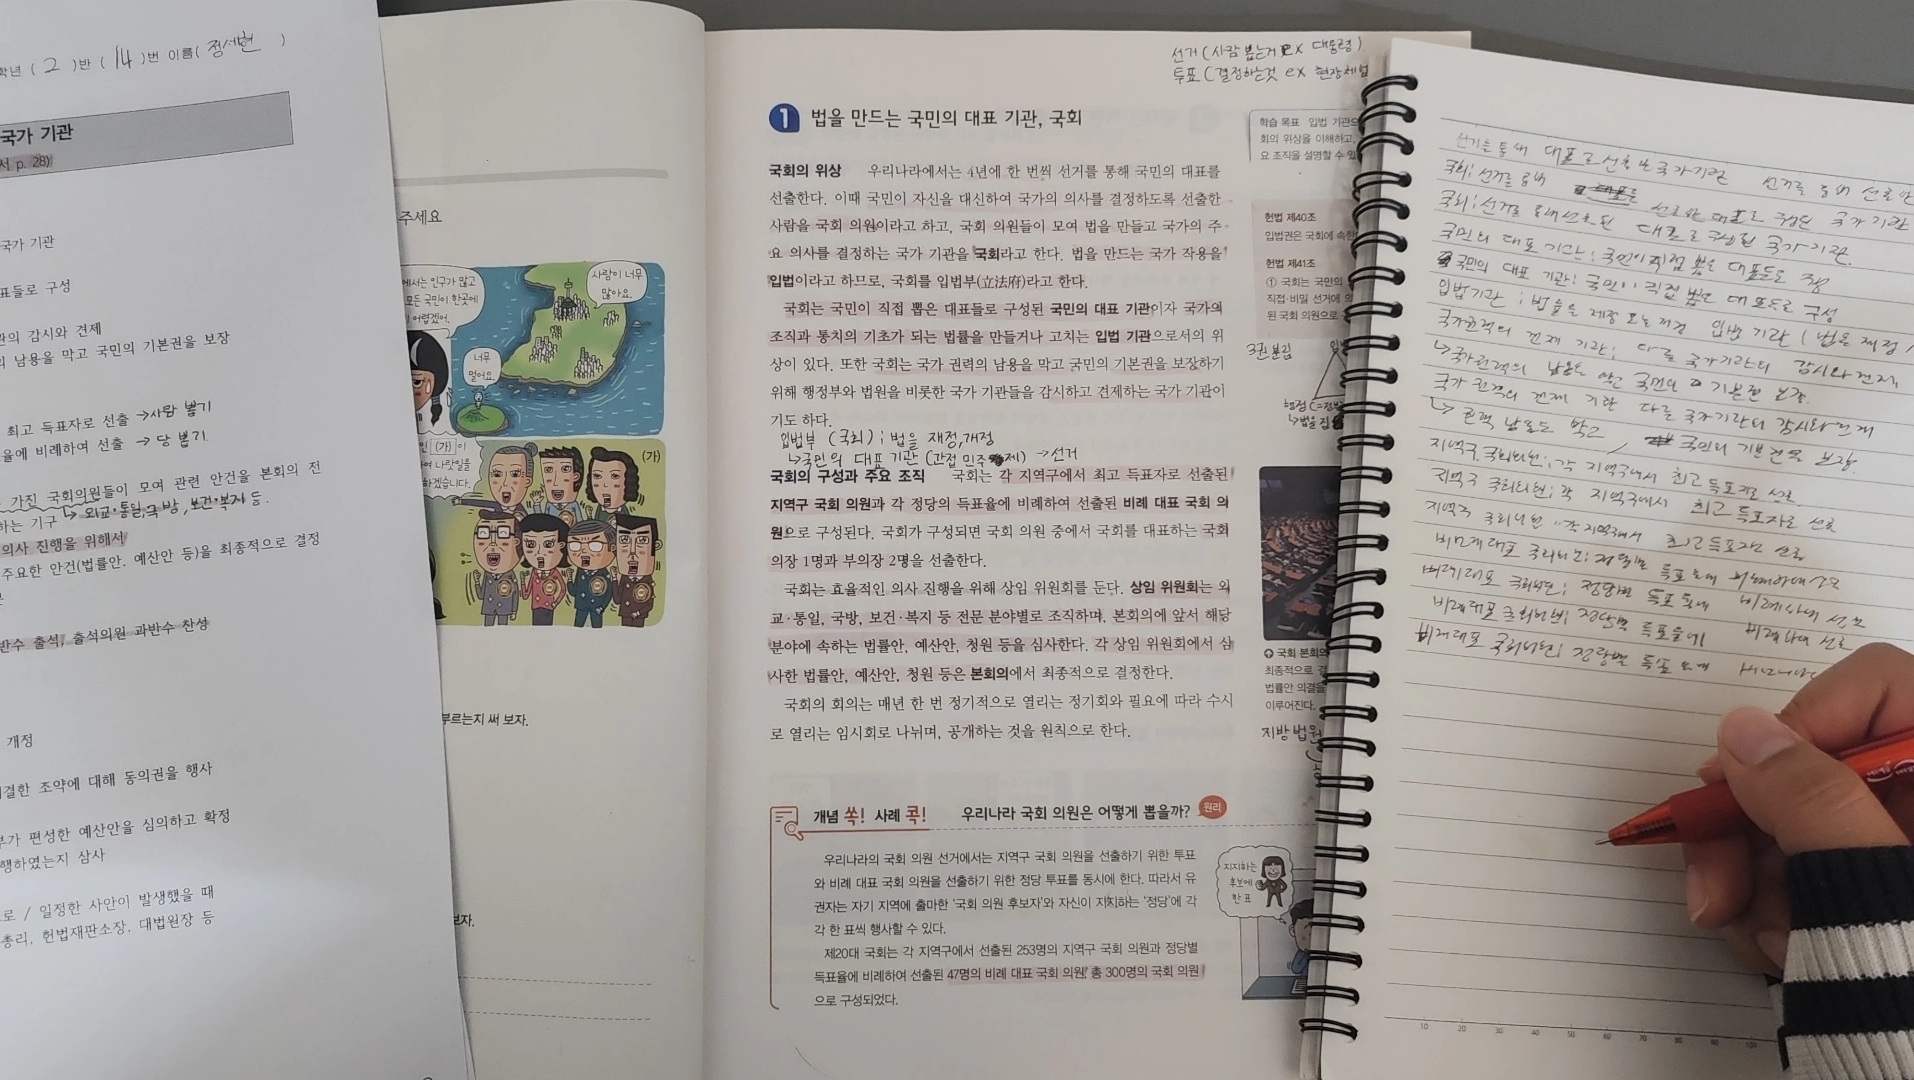 학년 ( 2 )반 ( 14 )번 이름( 정세현 )
국가 기관
서 p. 28)
국가 기관
표들로 구성
관의 감시와 견제
의 남용을 막고 국민의 기본권을 보장
최고 득표자로 선출 →사람 뽑기
율에 비례하여 선출 → 당 뽑기
가진 국회의원들이 모여 관련 안건을 본회의 전
하는 기구 ↳ 외교·통일, 국방, 보건·복지 등.
의사 진행을 위해서
주요한 안건(법률안, 예산안 등)을 최종적으로 결정
반수 출석, 출석의원 과반수 찬성
개정
결한 조약에 대해 동의권을 행사
부가 편성한 예산안을 심의하고 확정
행하였는지 심사
로 / 일정한 사안이 발생했을 때
총리, 헌법재판소장, 대법원장 등
주세요
에서는 인구가 많고
모든 국민이 한곳에
어렵겠어.
사람이 너무
많아요.
너무
멀어요.
(가) 이
여 나랏일을
하겠습니다.
(가)
부르는지 써 보자.
보자.
선거 (사람 뽑는거 ex 대통령)
투표 (결정하는것 ex 현장체험
1 법을 만드는 국민의 대표 기관, 국회
국회의 위상 우리나라에서는 4년에 한 번씩 선거를 통해 국민의 대표를
선출한다. 이때 국민이 자신을 대신하여 국가의 의사를 결정하도록 선출한
사람을 국회 의원이라고 하고, 국회 의원들이 모여 법을 만들고 국가의 주
요 의사를 결정하는 국가 기관을 국회라고 한다. 법을 만드는 국가 작용을
입법이라고 하므로, 국회를 입법부(立法府)라고 한다.
국회는 국민이 직접 뽑은 대표들로 구성된 국민의 대표 기관이자 국가의
조직과 통치의 기초가 되는 법률을 만들거나 고치는 입법 기관으로서의 위
상이 있다. 또한 국회는 국가 권력의 남용을 막고 국민의 기본권을 보장하기
위해 행정부와 법원을 비롯한 국가 기관들을 감시하고 견제하는 국가 기관이
기도 하다.
입법부 (국회) ; 법을 재정, 개정
↳국민의 대표 기관 (간접 민주 제) →선거
국회의 구성과 주요 조직 국회는 각 지역구에서 최고 득표자로 선출된
지역구 국회 의원과 각 정당의 득표율에 비례하여 선출된 비례 대표 국회 의
원으로 구성된다. 국회가 구성되면 국회 의원 중에서 국회를 대표하는 국회
의장 1명과 부의장 2명을 선출한다.
국회는 효율적인 의사 진행을 위해 상임 위원회를 둔다. 상임 위원회는 외
교·통일, 국방, 보건·복지 등 전문 분야별로 조직하며, 본회의에 앞서 해당
분야에 속하는 법률안, 예산안, 청원 등을 심사한다. 각 상임 위원회에서 심
사한 법률안, 예산안, 청원 등은 본회의에서 최종적으로 결정한다.
국회의 회의는 매년 한 번 정기적으로 열리는 정기회와 필요에 따라 수시
로 열리는 임시회로 나뉘며, 공개하는 것을 원칙으로 한다.
개념 쏙! 사례 콕! 우리나라 국회 의원은 어떻게 뽑을까? 원리
우리나라의 국회 의원 선거에서는 지역구 국회 의원을 선출하기 위한 투표
와 비례 대표 국회 의원을 선출하기 위한 정당 투표를 동시에 한다. 따라서 유
권자는 자기 지역에 출마한 '국회 의원 후보자'와 자신이 지지하는 '정당'에 각
각 한 표씩 행사할 수 있다.
제20대 국회는 각 지역구에서 선출된 253명의 지역구 국회 의원과 정당별
득표율에 비례하여 선출된 47명의 비례 대표 국회 의원, 총 300명의 국회 의원
으로 구성되었다.
지지하는
후보에
한 표
학습 목표 입법 기관으
회의 위상을 이해하고,
요 조직을 설명할 수 있
헌법 제40조
입법권은 국회에 속한
헌법 제41조
① 국회는 국민의
직접·비밀 선거에 의
된 국회 의원으로
3권 분립
국회 본회의
최종적으로 결
법률안 의결을
이루어진다.
지방법원
선거를 통해 대표로 선출한 국가기관 선거를 통해 선출한
국회; 선거를 통해 선출한 대표로 구성된 국가기관
국회; 선거를 통해 선출된 대표로 구성된 국가기관.
국민의 대표 기관; 국민이 직접 뽑은 대표들로 구성
국민의 대표 기관; 국민이 직접 뽑은 대표로 구성
입법기관 ; 법을 제정 또는 개정 입법 기관 ( 법을 제정 /
국가권력의 견제 기관; 다른 국가기관의 감시와 견제,
↳국가권력의 남용을 막고 국민의 기본권 보장.
국가 권력의 견제 기관 다른 국가기관의 감시와 견제
↳ 권력 남용도 막고 / 국민의 기본권을 보장.
지역구 국회의원; 각 지역구에서 최고 득표자로 선출
지역구 국회의원; 각 지역구에서 최고 득표자로 선출
지역구 국회의원 각 지역구에서 최고 득표자로 선출
비례대표 국회의원; 정당별 득표율에 비례하여 선출
비례대표 국회의원; 정당별 득표율에 비례하여 선출
비례대표 국회의원; 정당별 득표율에 비례하여 선출
비례대표 국회의원; 정당별 득표율에
10 20 30 40 50 60 70 80 90 100